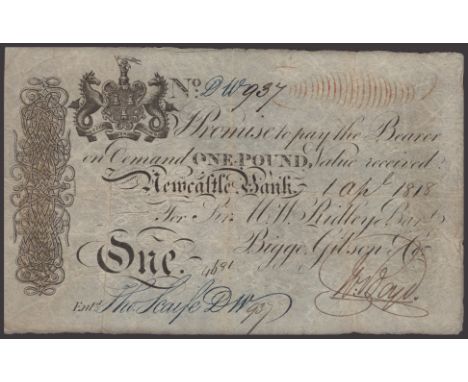 No. DW937
I Promise to pay the Bearer
on Demand ONE POUND, Value received.
Newcastle Bank 1 Apl. 1818
For Sir. M. W. Ridley Bart.
Bigge, Gibson & Co.
One.
Wm. Boyd.
Entd. Tho. Scaife DW937